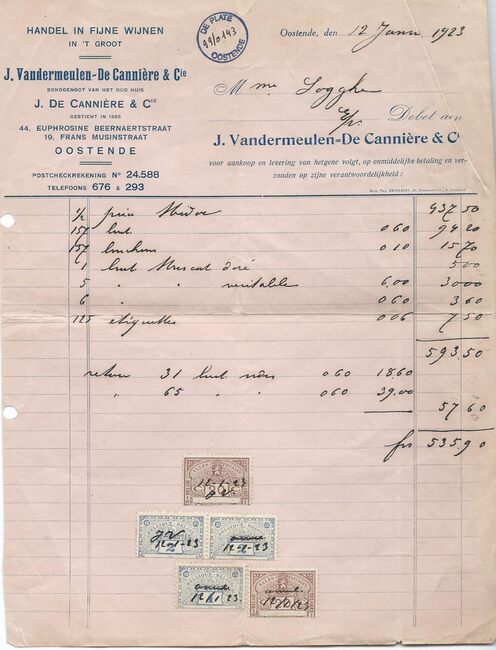 HANDEL IN FIJNE WIJNEN
IN 'T GROOT
J. Vandermeulen-De Cannière & Cie
BONDGENOOT VAN HET OUD HUIS
J. DE CANNIÈRE & Cie
GESTICHT IN 1865
44, EUPHROSINE BEERNAERTSTRAAT
19, FRANS MUSINSTRAAT
OOSTENDE
POSTCHECKREKENING No 24.588
TELEFOONS 676 & 293
DE PLATE
99/0143
OOSTENDE
Oostende, den 12 Janv 1923
M me
Debet aen
J. Vandermeulen-De Cannière & Cie
voor aankoop en levering van hetgene volgt, op onmiddelijke betaling en ver-
zonden op zijne verantwoordelijkheid :
1/2 437.50
157 0.60 94.20
157 0.10 15.70
1 Muscat doré 5.00
5 " " véritable 6.00 30.00
6 " 0.60 3.60
125 etiquettes 0.06 7.50
593.50
retour 31 0.60 18.60
" 65 " 0.60 39.00
57.60
frs 535.90
12-1-23
12-1-23
12-1-23
12/1 23
12/1/23